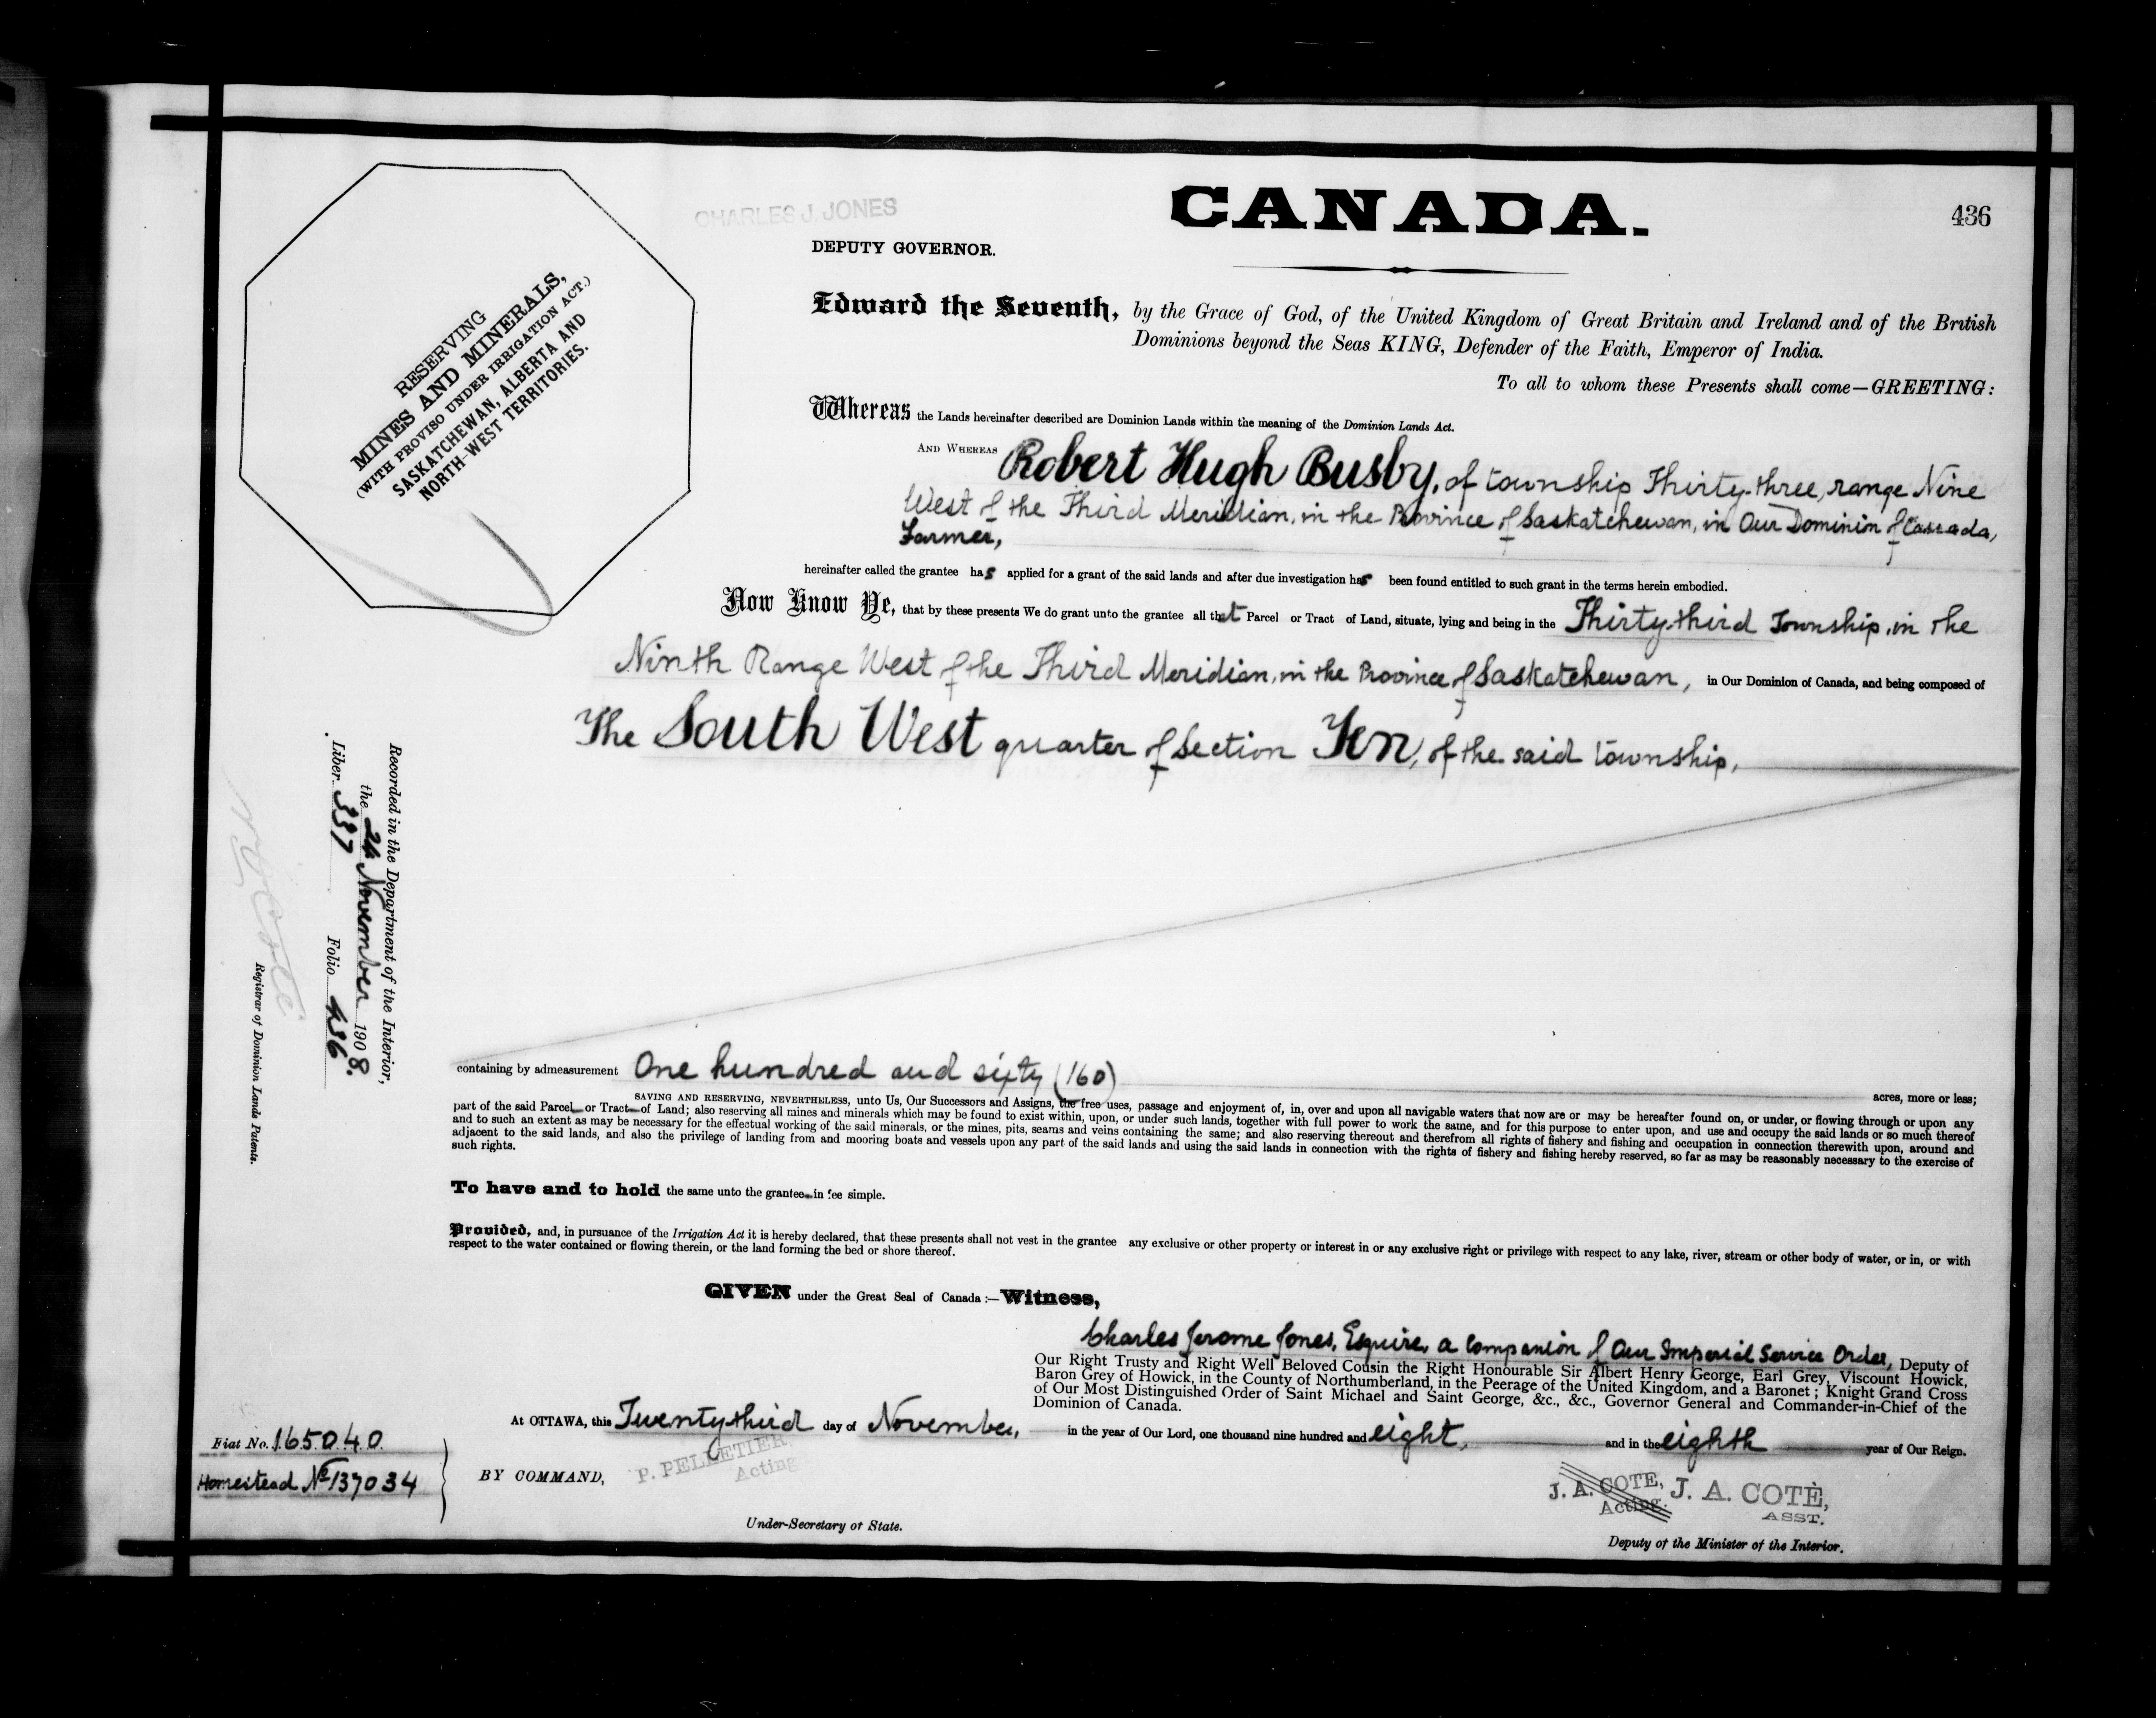 CHARLES J. JONES
CANADA.
436
DEPUTY GOVERNOR.
RESERVING
MINES AND MINERALS,
(WITH PROVISO UNDER IRRIGATION ACT.)
SASKATCHEWAN, ALBERTA AND
NORTH-WEST TERRITORIES.
Edward the Seventh, by the Grace of God, of the United Kingdom of Great Britain and Ireland and of the British
Dominions beyond the Seas KING, Defender of the Faith, Emperor of India.
To all to whom these Presents shall come—GREETING:
Whereas the Lands hereinafter described are Dominion Lands within the meaning of the Dominion Lands Act.
AND WHEREAS Robert Hugh Busby, of township Thirty-three, range Nine
West of the Third Meridian, in the Province of Saskatchewan, in Our Dominion of Canada,
Farmer,
hereinafter called the grantee has applied for a grant of the said lands and after due investigation has been found entitled to such grant in the terms herein embodied.
Now Know Ye, that by these presents We do grant unto the grantee all that Parcel or Tract of Land, situate, lying and being in the Thirty-third Township, in the
Ninth Range West of the Third Meridian, in the Province of Saskatchewan, in Our Dominion of Canada, and being composed of
The South West quarter of Section Ten, of the said township,
Recorded in the Department of the Interior,
the 24 November 1908.
Liber 337 Folio 436
Registrar of Dominion Lands Patents.
containing by admeasurement One hundred and sixty (160) acres, more or less;
SAVING AND RESERVING, NEVERTHELESS, unto Us, Our Successors and Assigns, the free uses, passage and enjoyment of, in, over and upon all navigable waters that now are or may be hereafter found on, or under, or flowing through or upon any
part of the said Parcel or Tract of Land; also reserving all mines and minerals which may be found to exist within, upon, or under such lands, together with full power to work the same, and for this purpose to enter upon, and use and occupy the said lands or so much thereof
and to such an extent as may be necessary for the effectual working of the said minerals, or the mines, pits, seams and veins containing the same; and also reserving thereout and therefrom all rights of fishery and fishing and occupation in connection therewith upon, around and
adjacent to the said lands, and also the privilege of landing from and mooring boats and vessels upon any part of the said lands and using the said lands in connection with the rights of fishery and fishing hereby reserved, so far as may be reasonably necessary to the exercise of
such rights.
To have and to hold the same unto the grantee in fee simple.
Provided, and, in pursuance of the Irrigation Act it is hereby declared, that these presents shall not vest in the grantee any exclusive or other property or interest in or any exclusive right or privilege with respect to any lake, river, stream or other body of water, or in, or with
respect to the water contained or flowing therein, or the land forming the bed or shore thereof.
GIVEN under the Great Seal of Canada:—Witness,
Charles Jerome Jones, Esquire, a Companion of Our Imperial Service Order, Deputy of
Our Right Trusty and Right Well Beloved Cousin the Right Honourable Sir Albert Henry George, Earl Grey, Viscount Howick,
Baron Grey of Howick, in the County of Northumberland, in the Peerage of the United Kingdom, and a Baronet; Knight Grand Cross
of Our Most Distinguished Order of Saint Michael and Saint George, &c., &c., Governor General and Commander-in-Chief of the
Dominion of Canada.
At OTTAWA, this Twenty-third day of November, in the year of Our Lord, one thousand nine hundred and eight, and in the eighth year of Our Reign.
Fiat No. 165040.
Homestead No 137034
BY COMMAND,
P. PELLETIER
Acting
Under-Secretary of State.
J. A. COTE,
Acting.
J. A. COTÈ,
ASST.
Deputy of the Minister of the Interior.